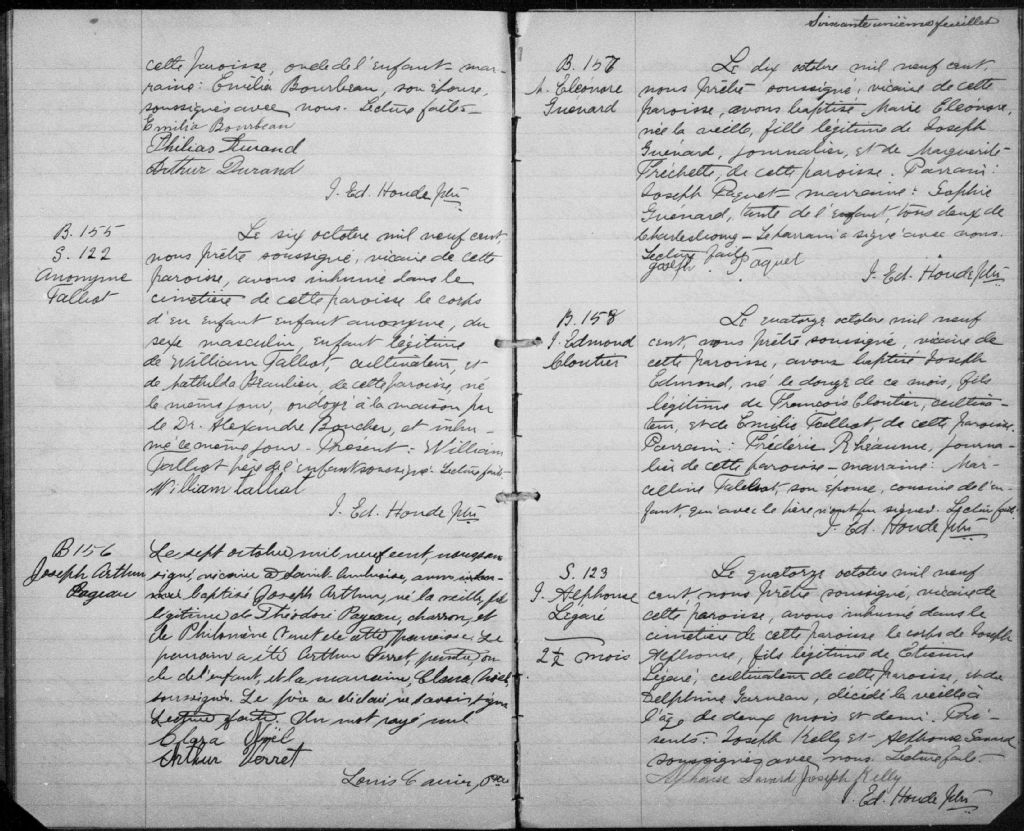 cette paroisse, oncle de l'enfant - mar-
raine: Emilia Bourbeau, son épouse,
soussignés avec nous. Lecture faite -
Emilia Bourbeau
Philias Durand
Arthur Durand
J. Ed. Houde Ptre
B. 155
S. 122
Anonyme
Talbot
Le six octobre mil neuf cent,
nous prêtre soussigné, vicaire de cette
paroisse, avons inhumé dans le
cimetière de cette paroisse le corps
d'un enfant enfant anonyme, du
sexe masculin, enfant légitime
de William Talbot, cultivateur, et
de Mathilda Beaulieu, de cette paroisse, né
le même jour, ondoyé à la maison par
le Dr. Alexandre Boucher, et inhu-
mé ce même jour - Présent: William
Talbot père de l'enfant soussigné. Lecture faite -
William Talbot
J. Ed. Houde Ptre
B 156
Joseph Arthur
Pageau
Le sept octobre, mil neuf cent, nous sous
signé, vicaire à Saint-Ambroise, avons
baptisé Joseph Arthur, né la veille, fils
légitime de Théodore Pageau, charron, et
de Philomène Verret de cette paroisse. Le
parrain a été Arthur Verret, on
cle de l'enfant, et la marraine, Clara
soussignés. Le père a déclaré ne savoir signer
Lecture faite. Un mot rayé nul
Clara
Arthur Verret
Louis Ptre
Soixante unième feuillet
B. 157
M. Eléonore
Guénard
Le dix octobre mil neuf cent
nous prêtre soussigné, vicaire de cette
paroisse, avons baptisé Marie Eléonore,
née la veille, fille légitime de Joseph
Guénard, journalier, et de Marguerite
Fréchette, de cette paroisse. Parrain:
Joseph Paquet - marraine: Sophie
Guénard, tante de l'enfant, tous deux de
Charlesbourg - Le parrain a signé avec nous.
Lecture faite.
Joseph Paquet
J. Ed. Houde Ptre
B. 158
J. Edmond
Cloutier
Le quatorze octobre mil neuf
cent nous prêtre soussigné, vicaire de
cette paroisse, avons baptisé Joseph
Edmond, né le douze de ce mois, fils
légitime de Francois Cloutier, cultiva-
teur, et de Emilie Talbot, de cette paroisse.
Parrain: Frédéric Rhéaume, journa-
lier de cette paroisse - marraine: Mar-
celline Talbot, son épouse, cousine de l'en-
fant, qui avec le père n'ont pu signer. Lecture faite.
J. Ed. Houde Ptre
S. 123
J. Alphonse
Légaré
2 1/2 mois
Le quatorze octobre mil neuf
cent nous prêtre soussigné, vicaire de
cette paroisse, avons inhumé dans le
cimetière de cette paroisse le corps de Joseph
Alphonse, fils légitime de Étienne
Légaré, cultivateur de cette paroisse, et de
Delphine Garneau, décédé la veille à
l'âge de deux mois et demi. Pré-
sents: Joseph Kelly et Alphonse Savard
soussignés avec nous. Lecture faite.
Alphonse Savard Joseph Kelly
J. Ed. Houde Ptre